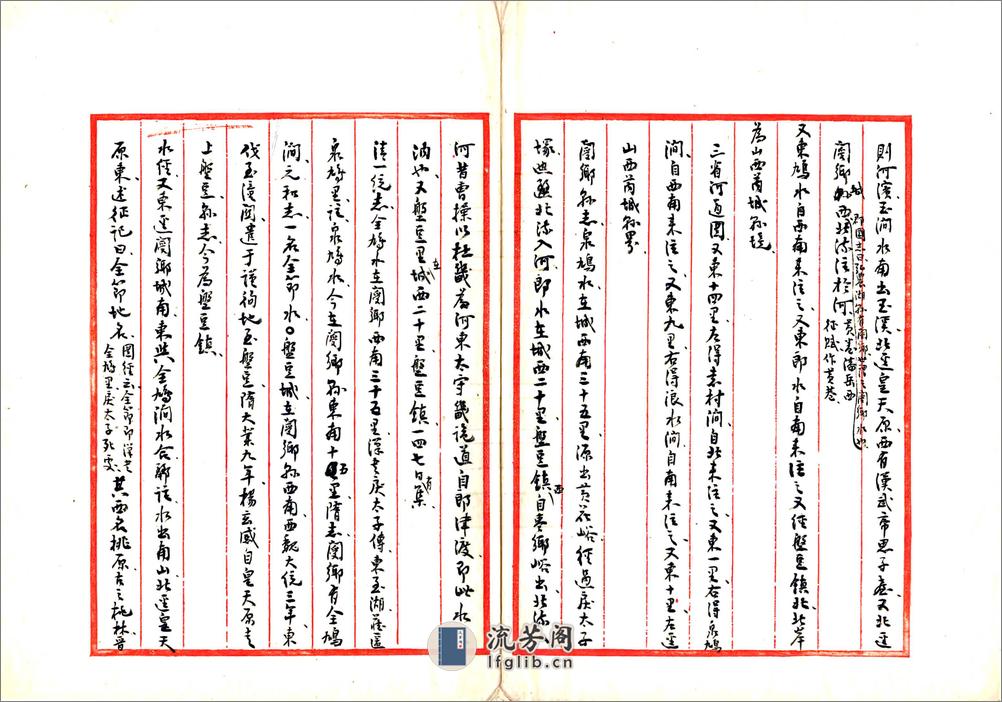 則河濱玉澗水南出玉溪北逕皇天原西有漢武帝思子臺又北逕
閿鄉城西北流注於河
郡國志曰弘農湖縣有閿鄉
黃巷潘岳西
征賦作黃巷
又東鳩水自西南來注之又東郎水自南來注之又經盤豆鎮北北岸
為山西芮城縣境
三省河道圖又東十四里左得袁村澗自北來注之又東一里右得泉鳩
澗自西南來注之又東九里右得浪水澗自南來注之又東十里左逕
山西芮城縣界
閿鄉縣志泉鳩水在城西南三十五里源出黃花峪經過戾太子
塚迆邐北流入河郎水在城西二十里盤豆鎮西自棗鄉峪出北流
河昔曹操以杜畿為河東太守畿詭道自郎津渡即此水
湳也又盤豆里在城西二十里盤豆鎮一四七日有集
清一統志全鳩水在閿鄉西南三十五里漢書戾太子傳東至湖藏匿
泉鳩里注泉鳩水今在閿鄉縣東南十五里隋志閿鄉有全鳩
澗元和志一名全節水○盤豆城在閿鄉縣西南西魏大統三年東
伐至潼關遣于謹徇地至盤豆隋大業九年楊玄感自皇天原走
上盤豆縣志今為盤豆鎮
水經又東逕閿鄉城南東與全鳩澗水合酈注水出南山北逕皇天
原東述征記曰全節地名
圖經云全節即漢書
全鳩里戾太子死處
其西名桃原古之桃林晉
流芳阁
lfglib.cn